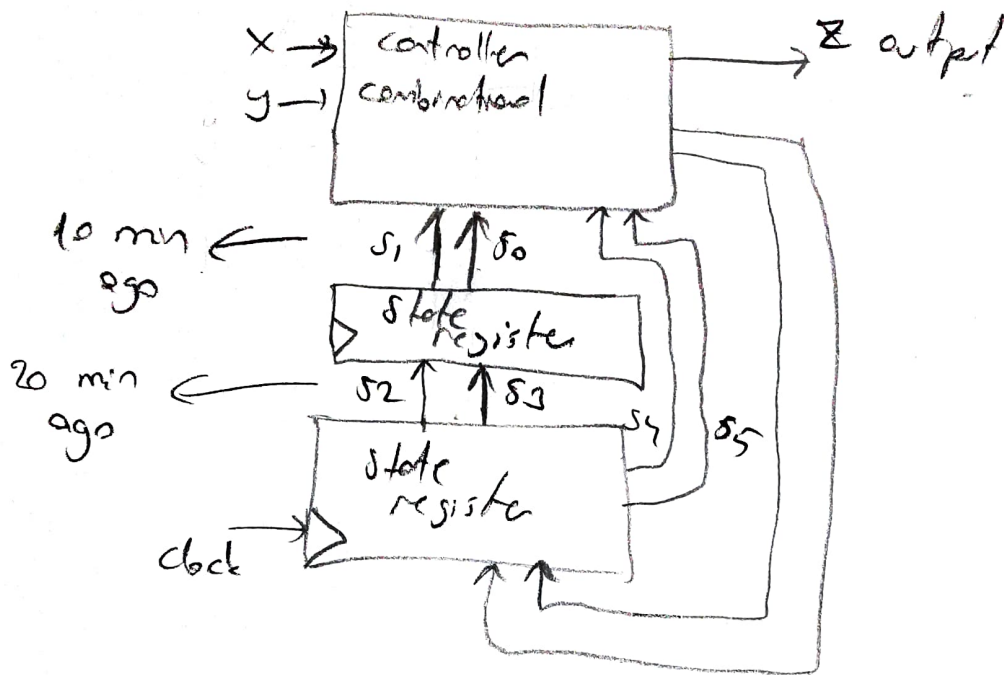 x
controller
z output
y
combinational
10 min
ago
s1
s0
state
register
20 min
ago
s2
s3
s4
s5
state
register
clock